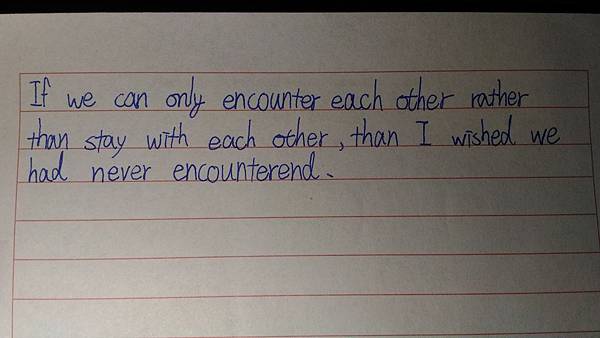 If we can only encounter each other rather
than stay with each other, than I wished we
had never encounterend.